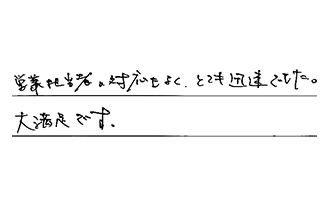 営業担当者の対応もよく、とても迅速でした。
大満足です。